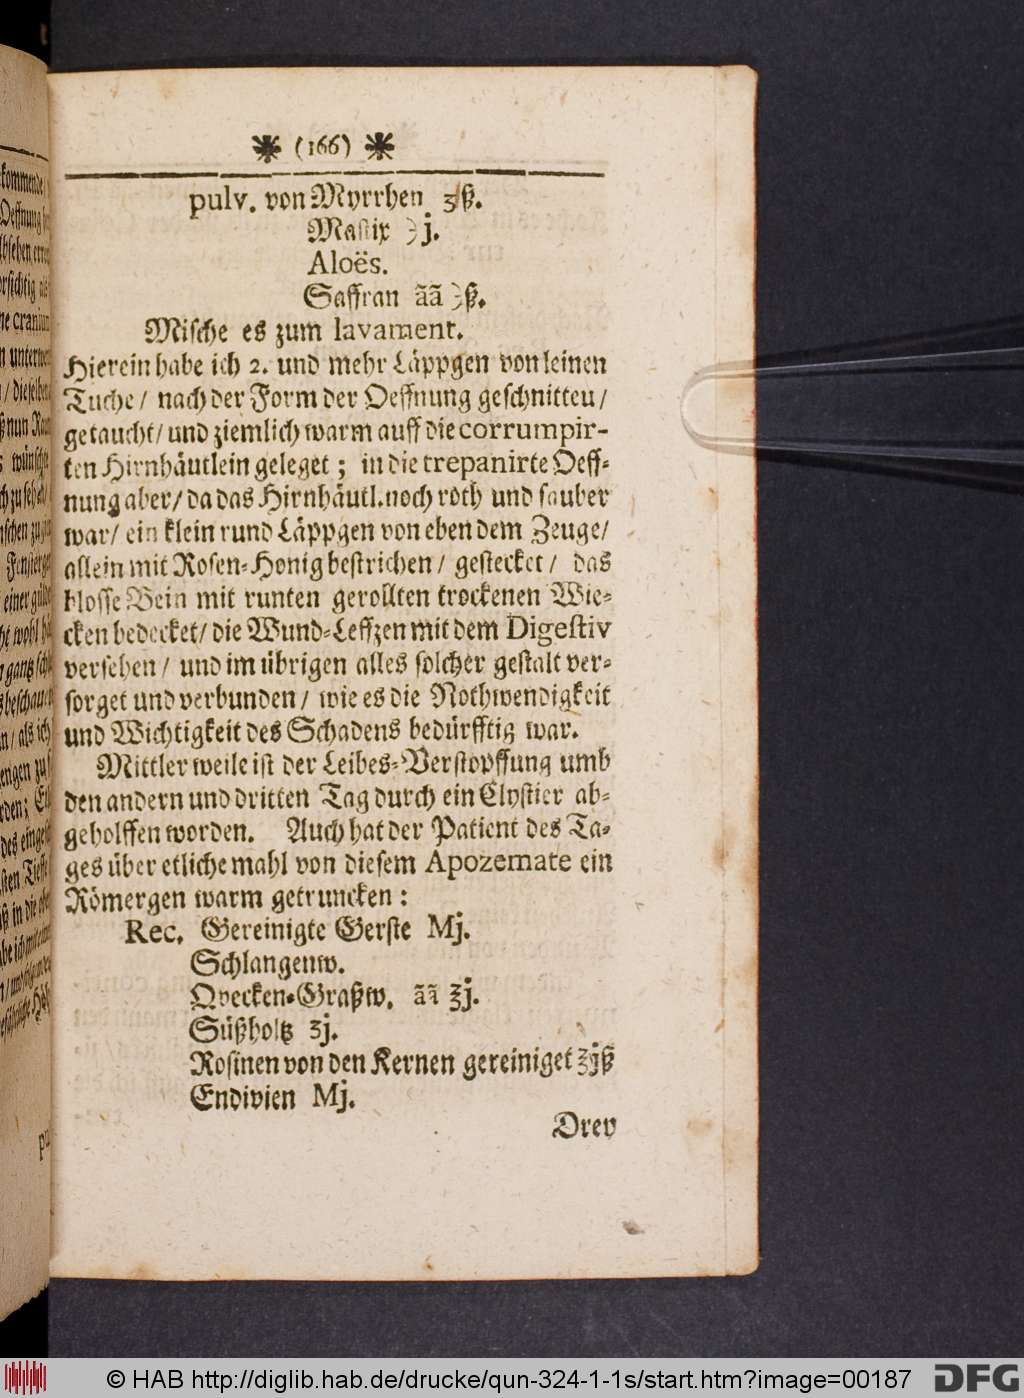 (166)
pulv. von Myrrhen ʒß.
Mastix ℈j.
Aloës.
Saffran ãã ℈ß.
Mische es zum lavament.
Hierein habe ich 2. und mehr Läppgen von leinen
Tuche / nach der Form der Oeffnung geschnitteu /
getaucht / und ziemlich warm auff die corrumpir-
ten Hirnhäutlein geleget ; in die trepanirte Oeff-
nung aber / da das Hirnhäutl. noch roth und sauber
war / ein klein rund Läppgen von eben dem Zeuge /
allein mit Rosen-Honig bestrichen / gestecket / das
blosse Bein mit runten gerollten trockenen Wie-
cken bedecket / die Wund-Leffzen mit dem Digestiv
versehen / und im übrigen alles solcher gestalt ver-
sorget und verbunden / wie es die Nothwendigkeit
und Wichtigkeit des Schadens bedürfftig war.
Mittler weile ist der Leibes-Verstopffung umb
den andern und dritten Tag durch ein Clystier ab-
geholffen worden. Auch hat der Patient des Ta-
ges über etliche mahl von diesem Apozemate ein
Römergen warm getruncken :
Rec. Gereinigte Gerste Mj.
Schlangenw.
Qvecken-Graßw. ãã ℥j.
Süßholtz ʒj.
Rosinen von den Kernen gereiniget ℥jß
Endivien Mj.
Drey
© HAB http://diglib.hab.de/drucke/qun-324-1-1s/start.htm?image=00187
DFG